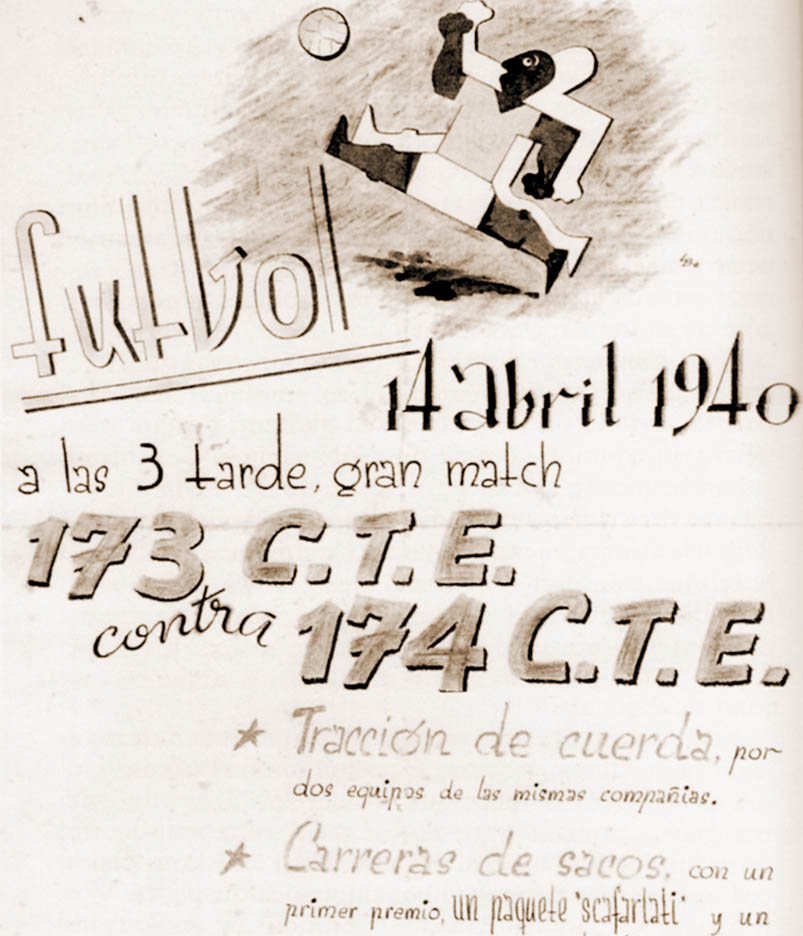 futbol
14 abril 1940
a las 3 tarde, gran match
173 C.T.E.
contra 174 C.T.E.
★ Tracción de cuerda, por
dos equipos de las mismas compañias.
★ Carreras de sacos, con un
primer premio, un paquete 'scafarlati' y un